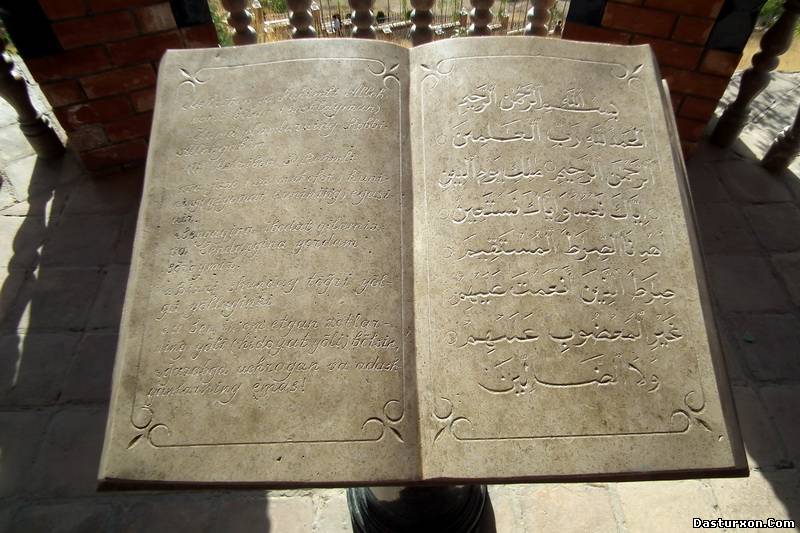 Alloh
olamlarning Robbi
Allohga
kuni-
egasi
dir.
Sengagina ibodat qilamiz
va Sendangina yordam
so'raymiz.
Bizni shunday to'g'ri yo'l-
ga yo'llaginki
u Sen in'om etgan zotlar-
ning yo'li (hidoyat yo'li) bo'lsin,
g'azabga uchragan va adash-
ganlarning emas!
بسم الله الرحمن الرحيم
الحمد لله رب العلمين
الرحمن الرحيم ملك يوم الدين
اياك نعبد و اياك نستعين
اهدنا الصرط المستقيم
صرط الذين أنعمت عليهم
غير المغضوب عليهم
ولا الضالين
Dasturxon.Com